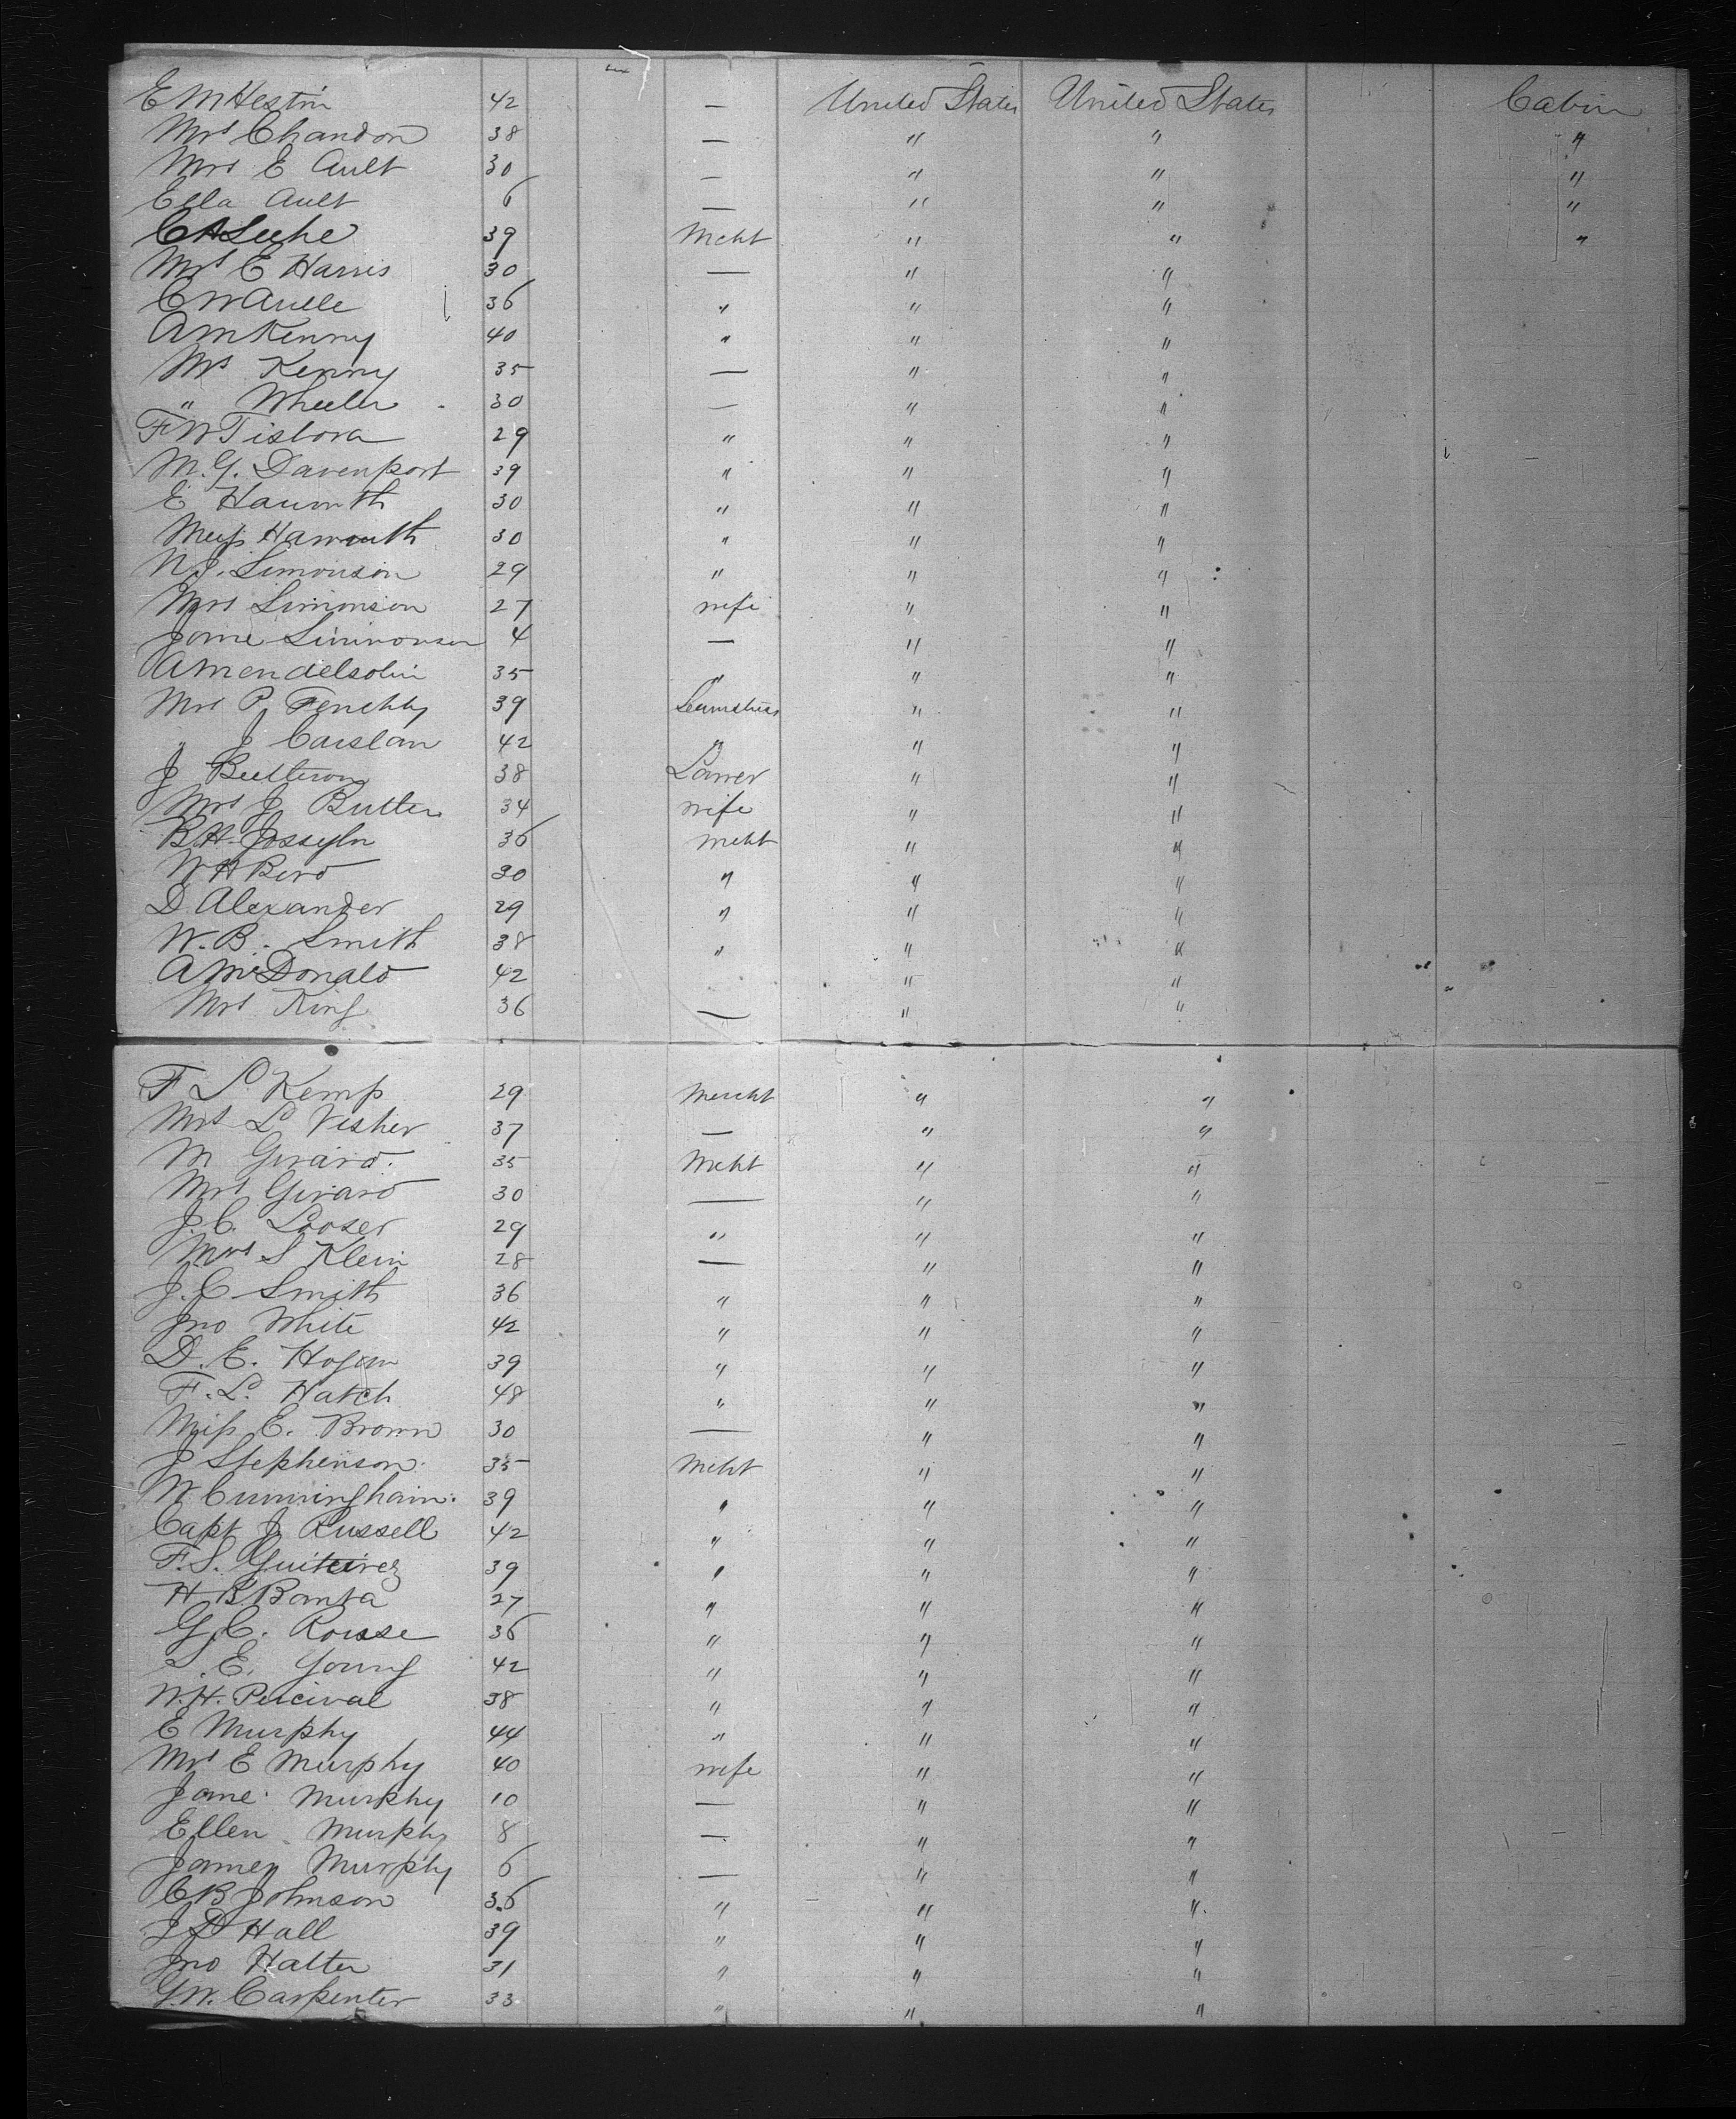 E M Hestin 42 — United States United States Cabin
Mrs Chandon 38 — " " "
Mrs E Ault 30 — " " "
Ella Ault 6 — " " "
C A Leehe 39 Mcht " " "
Mrs E Harris 30 — " "
C W Aulle 36 " " "
A M Kenny 40 " " "
Mrs Kenny 35 — " "
" Wheeler 30 — " "
F W Tislova 29 " " "
M. G. Davenport 39 " " "
E Haworth 30 " " "
Miss Haworth 30 " " "
N J. Simonson 29 " " "
Mrs Simonson 27 wife " "
Jane Simmonson 4 — " "
A Mendelsohn 35 " " "
Mrs P. Fenchly 39 Seamstress " "
" J Carslan 42 " " "
J 38 " "
Mrs J Butter 34 wife " "
B. H. Josseyln 36 Mcht " "
W H Bird 30 " " "
D. Alexander 29 " " "
W. B. Smith 38 " " "
A McDonald 42 " "
Mrs King 36 — " "
F L Kemp 29 Mercht " "
Mrs L Visher 37 — " "
M Girard. 35 Mcht " "
Mrs Girard 30 — " "
J. C. Looser 29 " " "
Mrs S Klein 28 — " "
J. C Smith 36 " " "
Jno White 42 " " "
D. E. Hogan 39 " " "
F. L. Hatch 48 " " "
Miss E. Brown 30 — " "
J Stephenson. 35 Mcht " "
W Cunningham. 39 " " "
Capt J Russell 42 " " "
F. S. Guiteirez 39 " " "
H B Banta 27 " " "
G. C. Rouse 36 " " "
S. E. Young 42 " " "
W. H. Percival 38 " " "
E Murphy 44 " " "
Mrs E Murphy 40 wife " "
Jane Murphy 10 — " "
Ellen Murphy 8 — " "
James Murphy 6 — " "
C B Johnson 36 " " "
J D Hall 39 " " "
Jno Halter 31 " " "
G. W. Carpenter 33 " " "